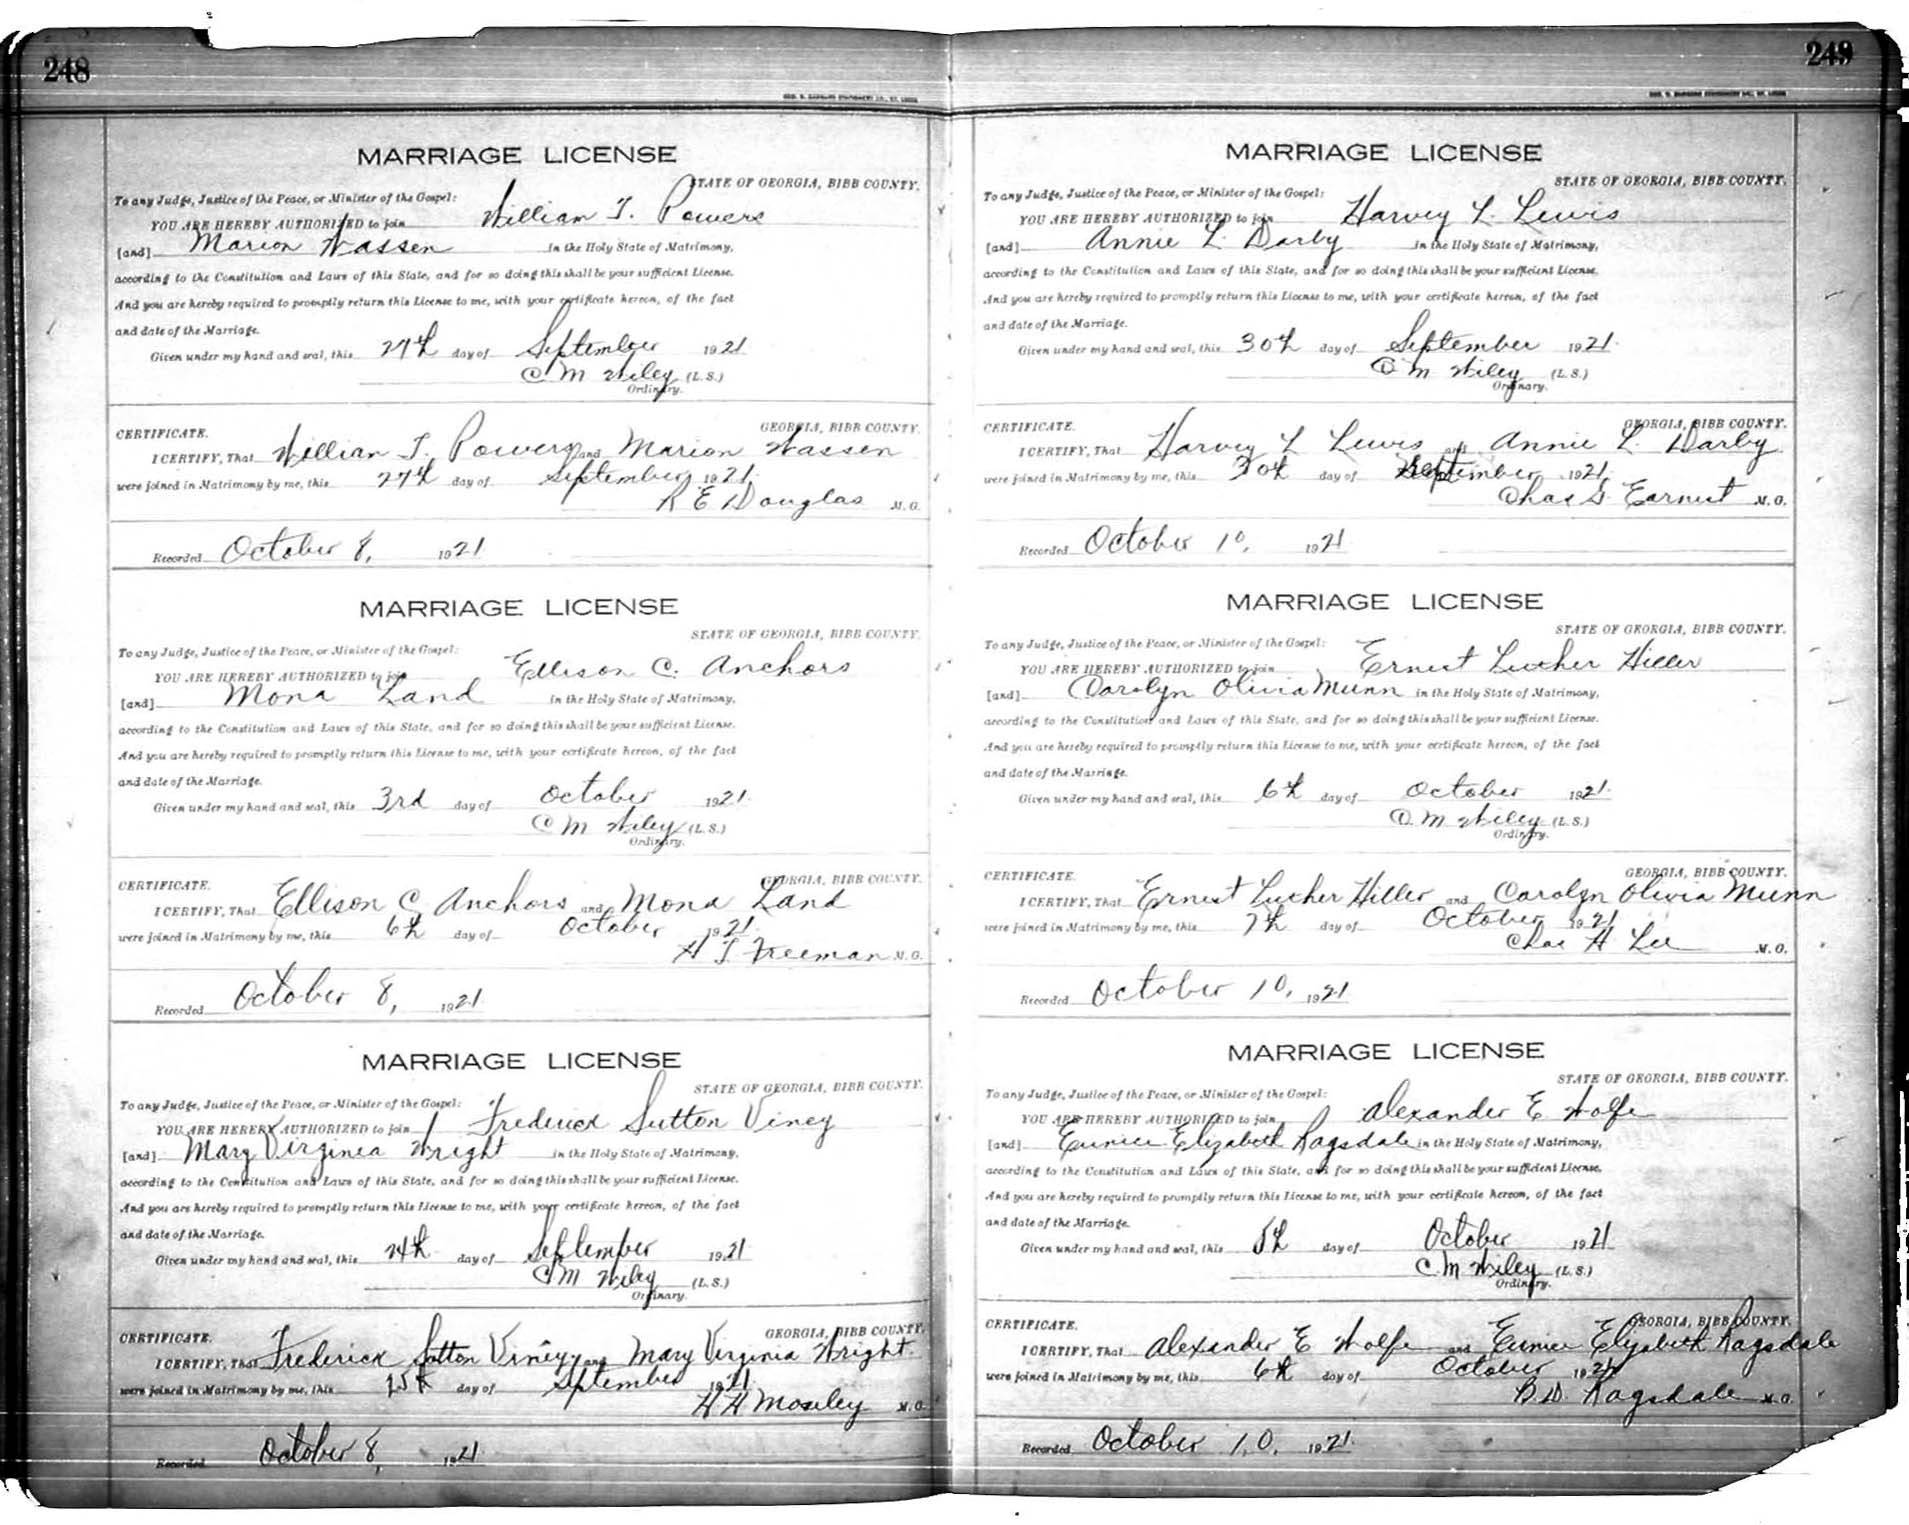 248
MARRIAGE LICENSE
STATE OF GEORGIA, BIBB COUNTY.
To any Judge, Justice of the Peace, or Minister of the Gospel:
YOU ARE HEREBY AUTHORIZED to join William T. Powers
[and] Marion Wassen in the Holy State of Matrimony,
according to the Constitution and Laws of this State, and for so doing this shall be your sufficient License.
And you are hereby required to promptly return this License to me, with your certificate hereon, of the fact
and date of the Marriage.
Given under my hand and seal, this 27th day of September 1921
C M Wiley (L.S.)
Ordinary.
GEORGIA, BIBB COUNTY.
CERTIFICATE.
I CERTIFY, That William T. Powers and Marion Wassen
were joined in Matrimony by me, this 27th day of September 1921
R E Douglas M.G.
Recorded October 8, 1921
MARRIAGE LICENSE
STATE OF GEORGIA, BIBB COUNTY.
To any Judge, Justice of the Peace, or Minister of the Gospel:
YOU ARE HEREBY AUTHORIZED to join Ellison C. Anchors
[and] Mona Land in the Holy State of Matrimony,
according to the Constitution and Laws of this State, and for so doing this shall be your sufficient License.
And you are hereby required to promptly return this License to me, with your certificate hereon, of the fact
and date of the Marriage.
Given under my hand and seal, this 3rd day of October 1921
C M Wiley (L.S.)
Ordinary.
GEORGIA, BIBB COUNTY.
CERTIFICATE.
I CERTIFY, That Ellison C Anchors and Mona Land
were joined in Matrimony by me, this 6th day of October 1921
H T Freeman M.G.
Recorded October 8, 1921
MARRIAGE LICENSE
STATE OF GEORGIA, BIBB COUNTY.
To any Judge, Justice of the Peace, or Minister of the Gospel:
YOU ARE HEREBY AUTHORIZED to join Frederick Sutton Viney
[and] Mary Virginia Wright in the Holy State of Matrimony,
according to the Constitution and Laws of this State, and for so doing this shall be your sufficient License.
And you are hereby required to promptly return this License to me, with your certificate hereon, of the fact
and date of the Marriage.
Given under my hand and seal, this 24th day of September 1921
C M Wiley (L.S.)
Ordinary.
GEORGIA, BIBB COUNTY.
CERTIFICATE.
I CERTIFY, That Frederick Sutton Viney and Mary Virginia Wright
were joined in Matrimony by me, this 25th day of September 1921
H H Mosley M.G.
Recorded October 8, 1921
249
MARRIAGE LICENSE
STATE OF GEORGIA, BIBB COUNTY.
To any Judge, Justice of the Peace, or Minister of the Gospel:
YOU ARE HEREBY AUTHORIZED to join Harvey L. Lewis
[and] Annie L. Darby in the Holy State of Matrimony,
according to the Constitution and Laws of this State, and for so doing this shall be your sufficient License.
And you are hereby required to promptly return this License to me, with your certificate hereon, of the fact
and date of the Marriage.
Given under my hand and seal, this 30th day of September 1921
C M Wiley (L.S.)
Ordinary.
GEORGIA, BIBB COUNTY.
CERTIFICATE.
I CERTIFY, That Harvey L Lewis and Annie L. Darby
were joined in Matrimony by me, this 30th day of September 1921
Chas S. Earnest M.G.
Recorded October 10, 1921
MARRIAGE LICENSE
STATE OF GEORGIA, BIBB COUNTY.
To any Judge, Justice of the Peace, or Minister of the Gospel:
YOU ARE HEREBY AUTHORIZED to join Ernest Luther Hiller
[and] Carolyn Olivia Munn in the Holy State of Matrimony,
according to the Constitution and Laws of this State, and for so doing this shall be your sufficient License.
And you are hereby required to promptly return this License to me, with your certificate hereon, of the fact
and date of the Marriage.
Given under my hand and seal, this 6th day of October 1921
C. M Wiley (L.S.)
Ordinary.
GEORGIA, BIBB COUNTY.
CERTIFICATE.
I CERTIFY, That Ernest Luther Hiller and Carolyn Olivia Munn
were joined in Matrimony by me, this 7th day of October 1921
Chas H Lee M.G.
Recorded October 10, 1921
MARRIAGE LICENSE
STATE OF GEORGIA, BIBB COUNTY.
To any Judge, Justice of the Peace, or Minister of the Gospel:
YOU ARE HEREBY AUTHORIZED to join Alexander E Wolfe
[and] Eunice Elizabeth Ragsdale in the Holy State of Matrimony,
according to the Constitution and Laws of this State, and for so doing this shall be your sufficient License.
And you are hereby required to promptly return this License to me, with your certificate hereon, of the fact
and date of the Marriage.
Given under my hand and seal, this 5th day of October 1921
C. M Wiley (L.S.)
Ordinary.
GEORGIA, BIBB COUNTY.
CERTIFICATE.
I CERTIFY, That Alexander E Wolfe and Eunice Elizabeth Ragsdale
were joined in Matrimony by me, this 6th day of October 1921
B. D. Ragsdale M.G.
Recorded October 10, 1921